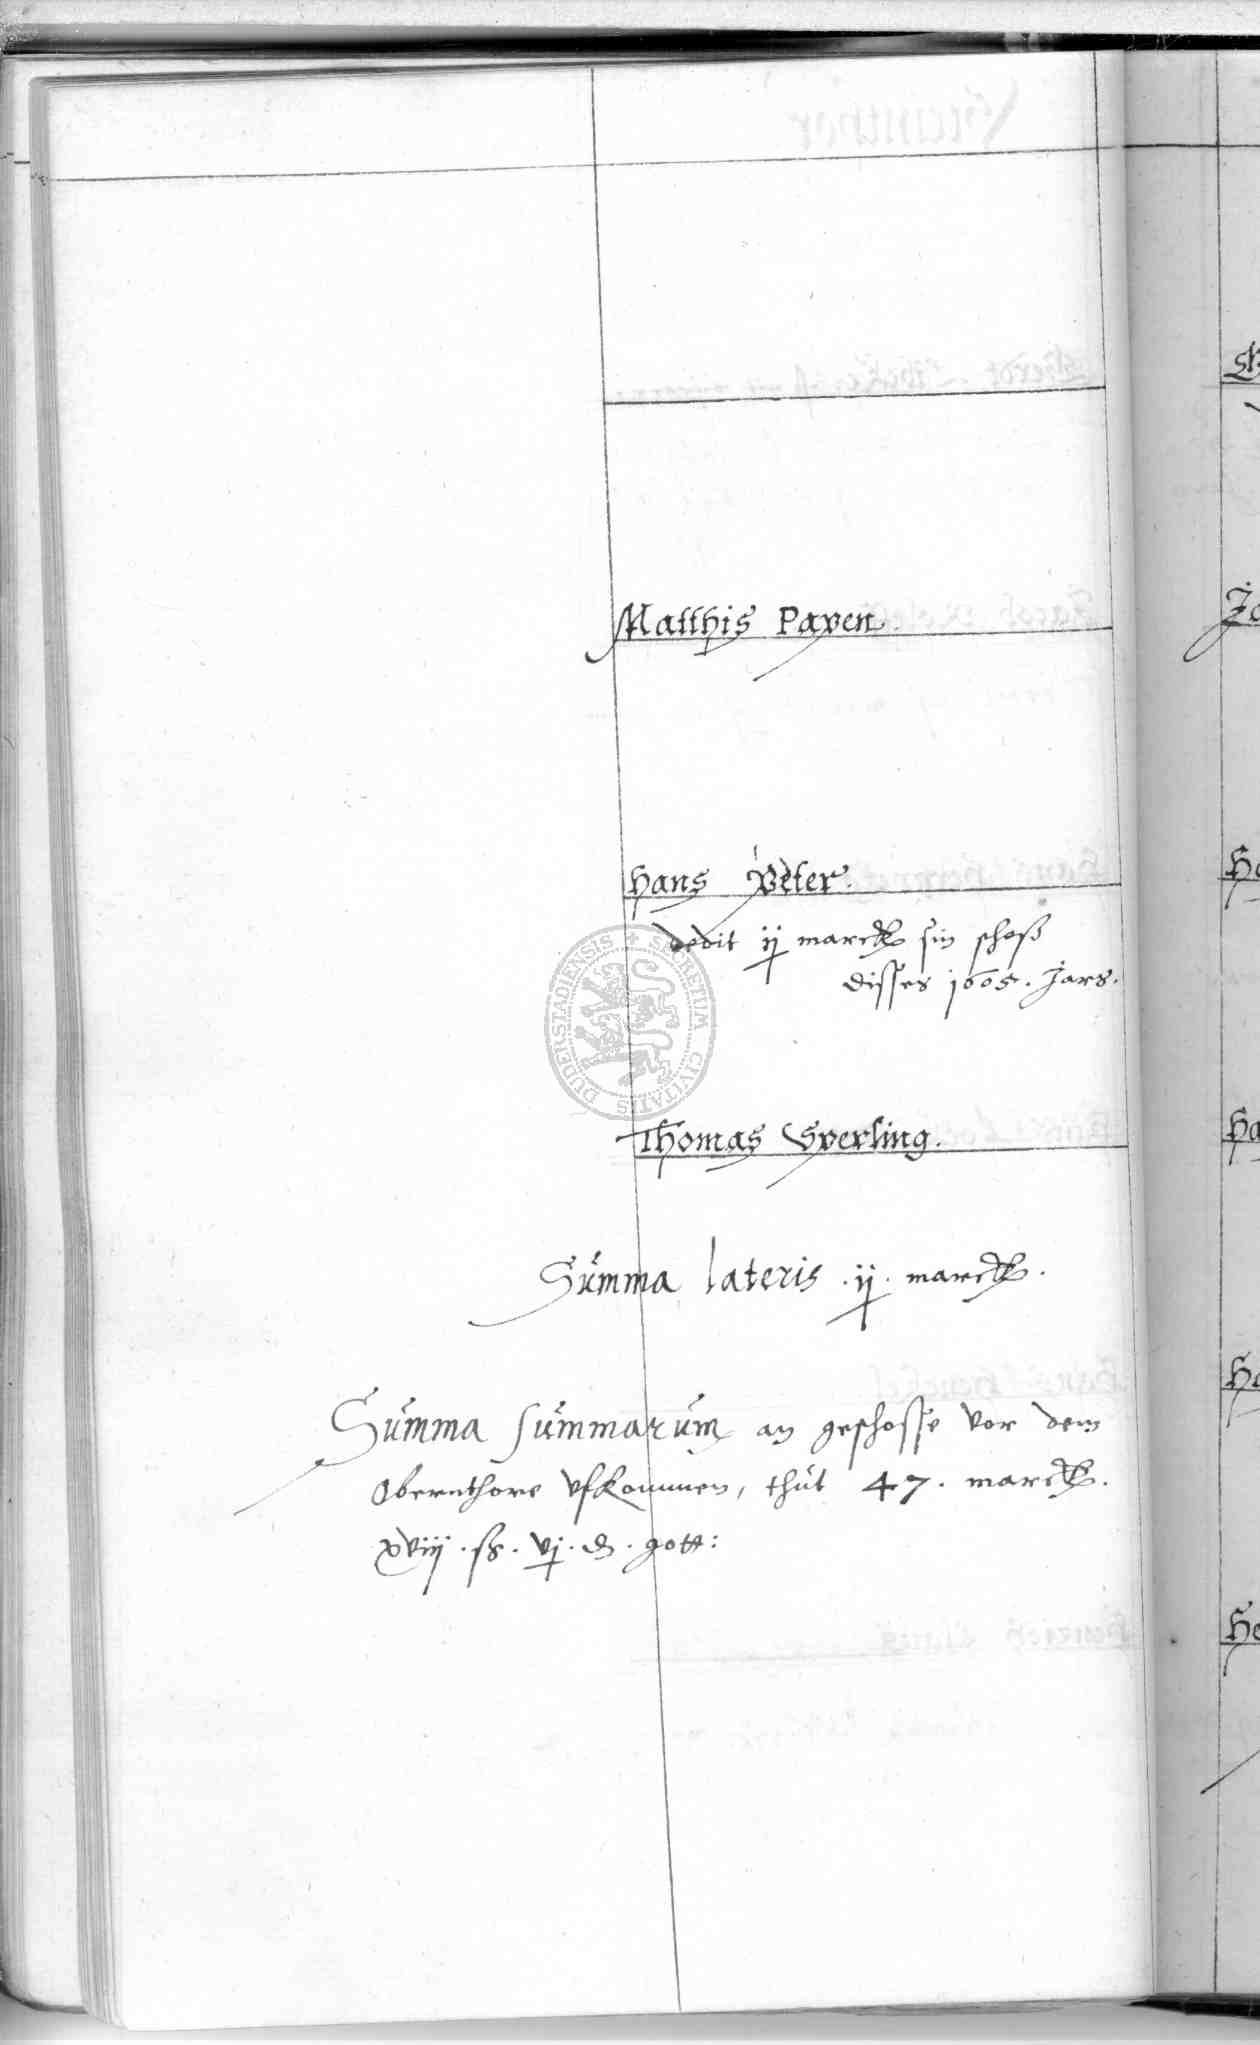 Matthis Papen.
Hans Peter.
dedit ij marck sin schoß
disses 1605. Jars.
SECRETUM CIVITATIS DUDERSTADIENSIS
Thomas Sperling.
Summa lateris .ij. marck.
Summa summarum an geschosse vor dem
Obernthore vfkommen, thut 47. marck.
xviij . ß . vj . d . gott:
Ja
Ha
Ha
Ha
He